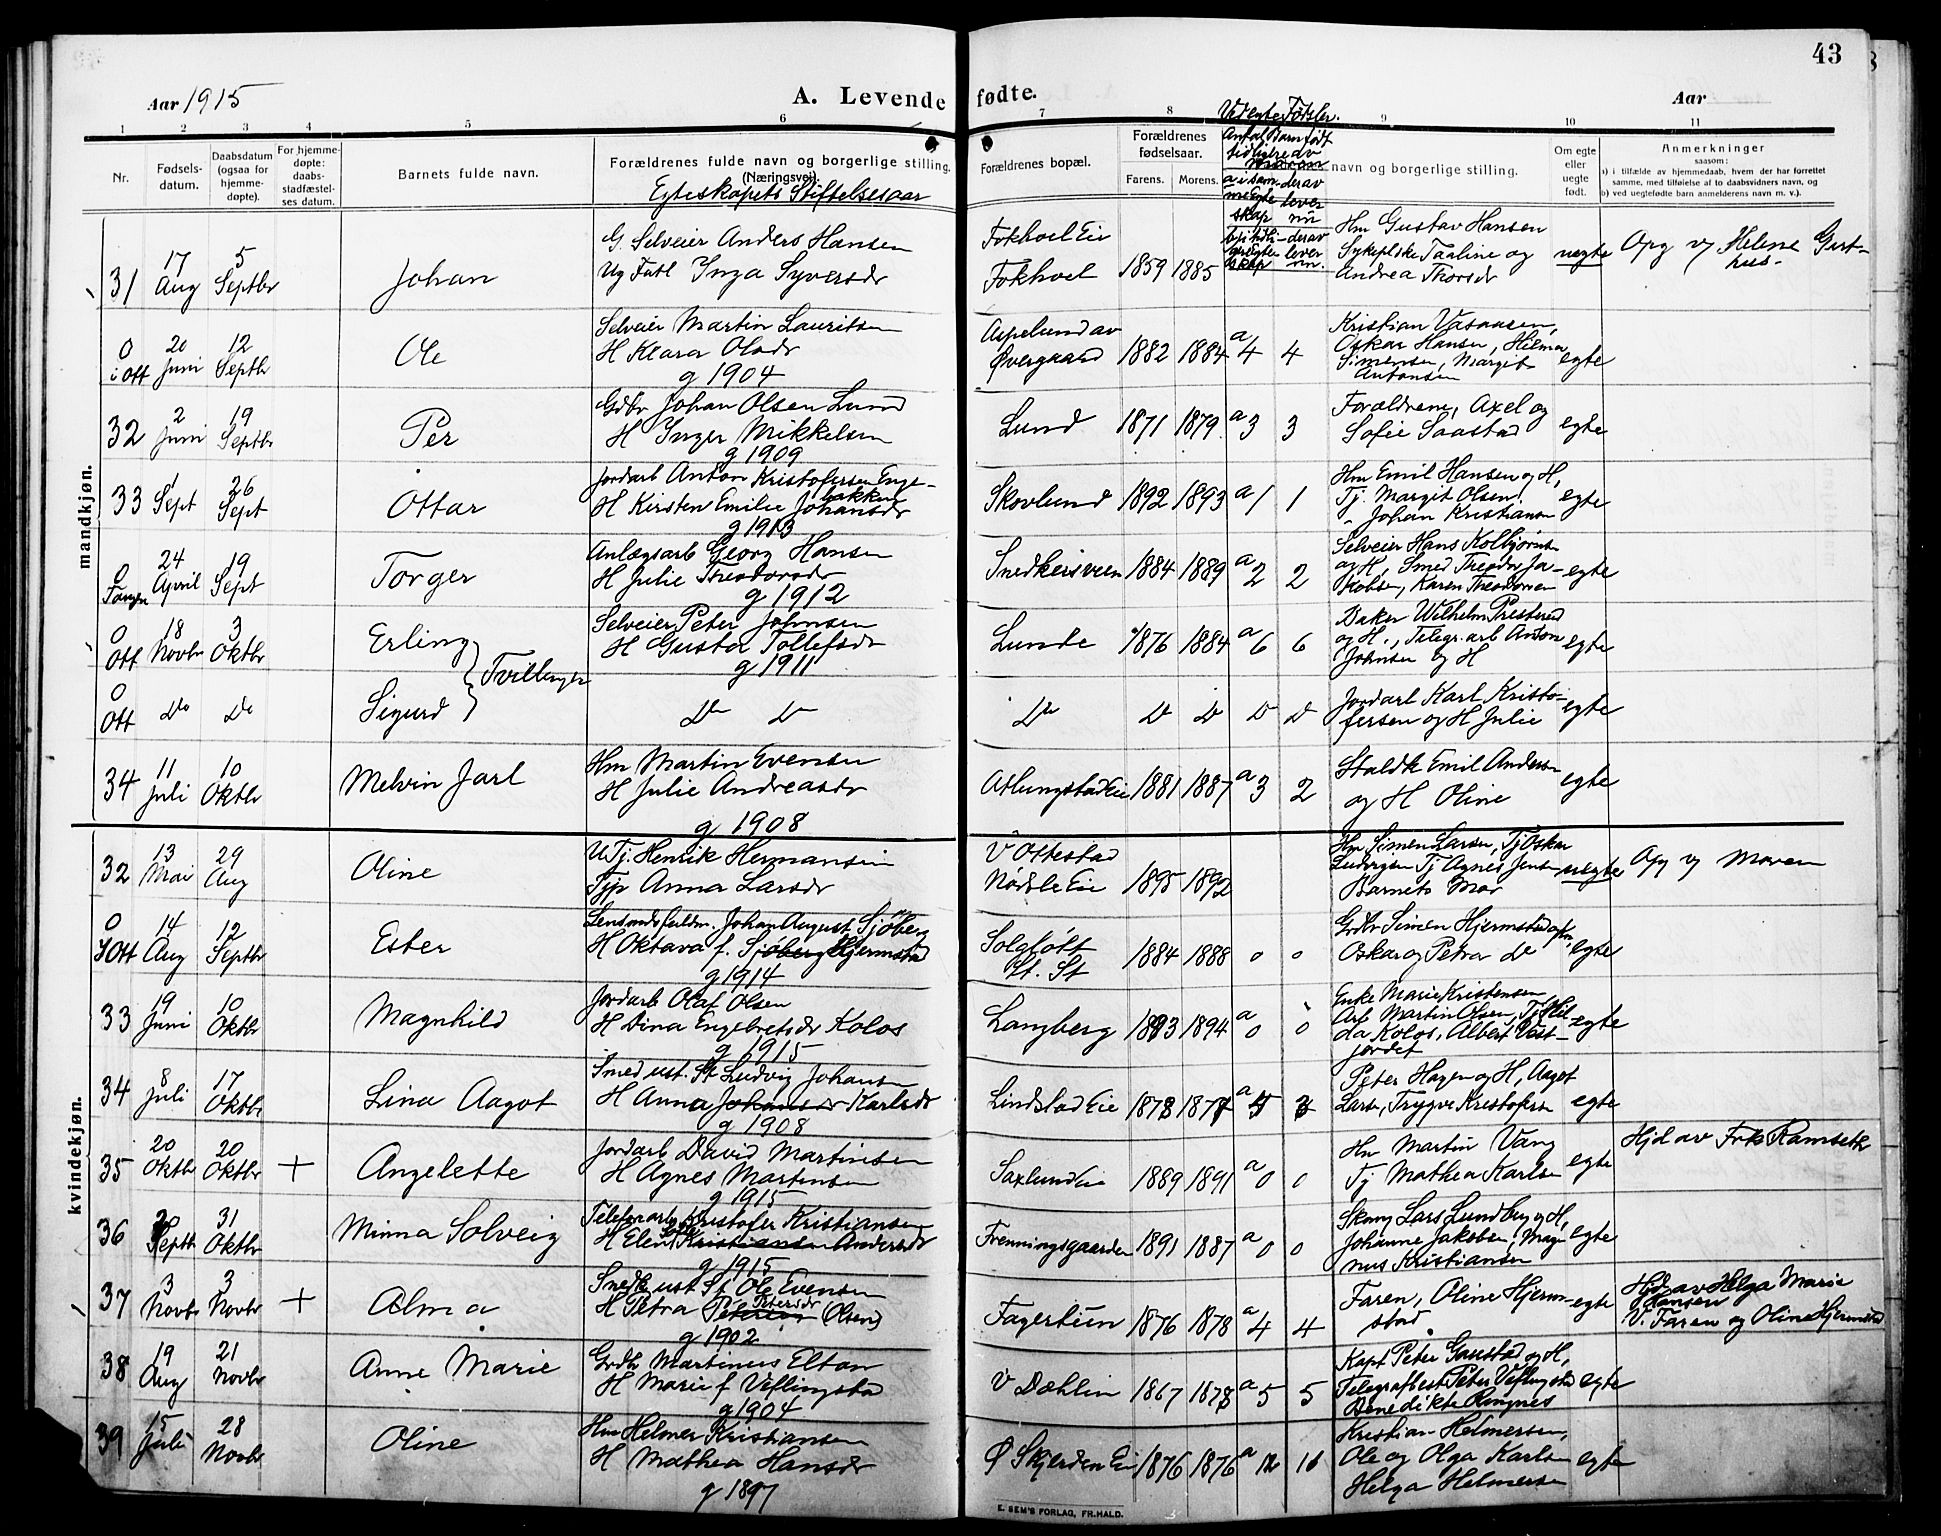 43
Aar 1915
A. Levende fødte.
Aar
1 2 3 4 5 6 7 8 9 10 11
Nr.
Fødsels-
datum.
Daabsdatum
(ogsaa for
hjemme-
døpte).
For hjemme-
døpte:
daabs-
stadfæstel-
ses datum.
Barnets fulde navn.
Forældrenes fulde navn og borgerlige stilling.
(Næringsvei).
Egteskapets Stiftelsesaar
Forældrenes bopæl.
Forældrenes
fødselsaar.
Farens. Morens.
Ved egte Fødsler.
Antal Barn født
tidligere av
a i sam- derav
me Egte lever
skap nu
b i tidli- derav
gere Egte lever
skap nu.
navn og borgerlige stilling.
Om egte
eller
uegte
født.
Anmerkninger
saasom:
a) i tilfælde av hjemmedaab, hvem der har forrettet
samme, med tilføielse af to daabsvidners navn, og
b) ved uegtefødte barn anmelderens navn m. v.).
mandkjøn.
31 17 Aug 5 Septbr Johan
G. Selveier Anders Hansen
Ug Fatl Inga Syversdr
Fokhol Eie
Fokhol
1859 1885
Hm Gustav Hansen
Sykepleske Taaline og
Andrea Thorsdr
uegte
Opg v/ Helene Gurt-
hus.
0 i Ott 20 Juni 12 Septbr Ole
Selveier Martin Lauritsen
H Klara Olsdr
g 1904
Aspelund av
Øvergaard
1882 1884 a 4 4
Kristian Vasaasen,
Oskar Hansen, Hilma
Simensen, Margit
Antonsen
egte
32 2 Juni 19 Septbr Per
Gdbr Johan Olsen Lund
H Inger Mikkelsen
g 1909
Lund
1871 1879 a 3 3
Forældrene, Axel og
Sofie Saastad
egte
33 1 Sept 26 Sept Ottar
Jordarb Anton Kristofersen Enge-
bakken
H Kirsten Emilie Johansdr
g 1913
Skovlund
1892 1893 a 1 1
Hm Emil Hansen og H,
Tj. Margit Olsen,
" Johan Kristiansen
egte
0 Tangen 24 April 19 Sept Torger
Anlægsarb Georg Hansen
H Julie Theodorsdr
g 1912
Snedkersveen
1884 1889 a 2 2
Selveier Hans Kolbjørnsen
og H, Smed Theodor Ja-
kobsen, Karen Theodorsen
egte
0 Ott 18 Novbr 3 Oktbr Erling
Tvillinger
Selveier Peter Johnsen
H Gusta Tollefsdr
g 1911
Lunde
1876 1884 a 6 6
Baker Wilhelm Presterud
og H., Telegr.arb Anton
Johnsen og H
egte
0 Ott Do Do Sigurd
Do Do
Do Do Do Do Do
Jordarb Karl Kristo-
fersen og H Julie
egte
34 11 Juli 10 Oktbr Melvin Jarl
Hm Martin Evensen
H Julie Andreasdr
g 1908
Atlungstad Eie
1881 1887 a 3 2
Staldk Emil Andersen
og H Oline
egte
kvindekjøn.
32 13 Mai 29 Aug Oline
U Tj. Henrik Hermansen
Tjp Anna Larsdr
V Ottestad
Nødsle Eie
1895 1892
Hm Simen Larsen, Tj Oskar
Ludvigsen Tj Agnes Jensen
Barnets Mor
uegte
Opg v/ Moren
0 i Ott 14 Aug 12 Septbr Ester
Lensmandsfuldm. Johan August Sjöberg
H Oktava f. Sjöberg Hjermstad
g 1914
Solglött
St. St
1884 1888 0 0
Grdbr Simen Hjermstad
Oskar og Petra do
egte
33 19 Juni 10 Oktbr Magnhild
Jordarb Olaf Olsen
H Dina Engebretsdr Kolos
g 1915
Langberg
1893 1894 a 0 0
Enke Marie Kristensen
Arb Martin Olsen, Tj Hil-
da Kolos, Albert Vest-
jordet
egte
34 8 Juli 17 Oktbr Lina Aagot
Smed ust. St Ludvig Johansen
H Anna Johansdr Karlsdr
g 1908
Lindstad Eie
1878 1877 a
Peter Hagen og H, Aagot
Larsen, Trygve Kristofersen
egte
35 20 Oktbr 20 Oktbr + Angelette
Jordarb David Martinsen
H Agnes Martinsen
g 1915
Saxlund Eie
1889 1891 a 0 0
Hm Martin Vang
Tj Mathea Karlsen
egte
Hjd av Frk Ramseth
36 2 Septbr 31 Oktbr Minna Solveig
Telefonarb Kristofer Kristiansen
H Elen Kristiansen Andersdr
g 1915
Frenningsgaarden
1891 1887 a 0 0
Skom Lars Lundberg og H,
Johanne Jakobsen, Mag-
nus Kristiansen
egte
37 3 Novbr 3 Novbr + Alma
Snedk ust St Ole Evensen
H Petra Petersdr (Olsen)
g 1902
Fagertun
1876 1878 a 4 4
Faren, Oline Hjerm-
stad
egte
Hjd av Helga Marie
Hansen
V. Faren og Oline Hjermstad
38 19 Aug 21 Novbr Anne Marie
Grdbr Martinus Elton
H Marie f Veflingstad
g 1904
V Dæhlin
1867 1878 a 5 5
Kapt Peter Gaustad og H,
Telegrafbest Peter Veflingstad
Benedikte Ringnes
egte
39 15 Juli 28 Novbr Oline
Hm Helmer Kristiansen
H Mathea Hansdr
g 1897
Ø Skjerden Eie
1876 1876 a 12 10
Kristian Helmersen,
Ole og Olga Karlsen
Helga Helmersen
egte
E. SEM'S FORLAG, FR.HALD.